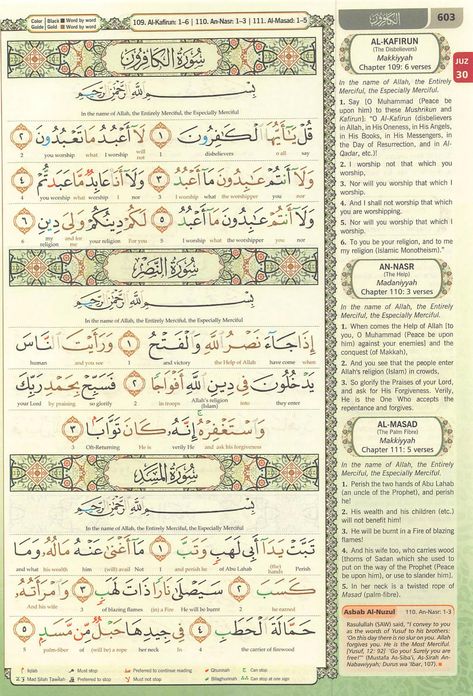 Color | Black ■ Word by word
Guide | Gold ■ Word by word
109. Al-Kafirun: 1-6 | 110. An-Nasr: 1-3 | 111. Al-Masad: 1-5
الكافرون
603
JUZ
30
سُورَةُ الْكَافِرُونَ
بِسْمِ اللَّهِ الرَّحْمَٰنِ الرَّحِيمِ
In the name of Allah, the Entirely Merciful, the Especially Merciful
قُلْ يَٰٓأَيُّهَا ٱلْكَٰفِرُونَ ١ لَآ أَعْبُدُ مَا تَعْبُدُونَ ٢
2 you worship what I worship will not 1 disbelievers o all say
وَلَآ أَنتُمْ عَٰبِدُونَ مَآ أَعْبُدُ ٣ وَلَآ أَنَا۠ عَابِدٌ مَّا عَبَدتُّمْ ٤
4 you worship what worshipper I nor 3 I worship what the worshipper you nor
وَلَآ أَنتُمْ عَٰبِدُونَ مَآ أَعْبُدُ ٥ لَكُمْ دِينُكُمْ وَلِىَ دِينِ ٦
6 my religion and for me your religion For you 5 I worship what the worshipper you nor
سُورَةُ النَّصْرِ
بِسْمِ اللَّهِ الرَّحْمَٰنِ الرَّحِيمِ
In the name of Allah, the Entirely Merciful, the Especially Merciful
إِذَا جَآءَ نَصْرُ ٱللَّهِ وَٱلْفَتْحُ ١ وَرَأَيْتَ ٱلنَّاسَ
human and you see 1 and victory the Help of Allah have come when
يَدْخُلُونَ فِى دِينِ ٱللَّهِ أَفْوَاجًا ٢ فَسَبِّحْ بِحَمْدِ رَبِّكَ
your Lord by praising so glorify 2 in troops Allah's religion (Islam) into they enter
وَٱسْتَغْفِرْهُ إِنَّهُۥ كَانَ تَوَّابًۢا ٣
3 Oft-Returning is verily He and ask his forgiveness
سُورَةُ الْمَسَدِ
بِسْمِ اللَّهِ الرَّحْمَٰنِ الرَّحِيمِ
In the name of Allah, the Entirely Merciful, the Especially Merciful
تَبَّتْ يَدَآ أَبِى لَهَبٍ وَتَبَّ ١ مَآ أَغْنَىٰ عَنْهُ مَالُهُۥ وَمَا
and what his wealth him (will) avail Not 1 and perish he of Abu Lahab (the) hands Perish
كَسَبَ ٢ سَيَصْلَىٰ نَارًا ذَاتَ لَهَبٍ ٣ وَٱمْرَأَتُهُۥ
And his wife 3 of blazing flames (in) a Fire He will be burnt 2 he earned
حَمَّالَةَ ٱلْحَطَبِ ٤ فِى جِيدِهَا حَبْلٌ مِّن مَّسَدٍۭ ٥
5 palm-fiber of (will be) a rope her neck In 4 the carrier of firewood
Iqlab Must stop Preferred to continue reading Qhunnah Can stop
Mad Silah Tawilah Must not stop Preferred to stop Bilaghunnah Can stop
AL-KAFIRUN
(The Disbelievers)
Makkiyyah
Chapter 109: 6 verses
In the name of Allah, the Entirely
Merciful, the Especially Merciful.
1. Say (O Muhammad (Peace be
upon him) to these Mushrikun and
Kafirun): "O Al-Kafirun (disbelievers
in Allah, in His Oneness, in His Angels,
in His Books, in His Messengers, in
the Day of Resurrection, and in Al-
Qadar, etc.)!
2. I worship not that which you
worship.
3. Nor will you worship that which I
worship.
4. And I shall not worship that which
you are worshipping.
5. Nor will you worship that which I
worship.
6. To you be your religion, and to me
my religion (Islamic Monotheism)."
AN-NASR
(The Help)
Madaniyyah
Chapter 110: 3 verses
In the name of Allah, the Entirely
Merciful, the Especially Merciful.
1. When comes the Help of Allah (to
you, O Muhammad (Peace be upon
him) against your enemies) and the
conquest (of Makkah),
2. And you see that the people enter
Allah's religion (Islam) in crowds,
3. So glorify the Praises of your Lord,
and ask for His Forgiveness. Verily,
He is the One Who accepts the
repentance and forgives.
AL-MASAD
(The Palm Fibre)
Makkiyyah
Chapter 111: 5 verses
In the name of Allah, the Entirely
Merciful, the Especially Merciful.
1. Perish the two hands of Abu Lahab
(an uncle of the Prophet), and perish
he!
2. His wealth and his children (etc.)
will not benefit him!
3. He will be burnt in a Fire of blazing
flames!
4. And his wife too, who carries wood
(thorns of Sadan which she used to
put on the way of the Prophet (Peace
be upon him), or use to slander him].
5. In her neck is a twisted rope of
Masad (palm-fibre).
Asbab Al-Nuzul 110. An-Nasr: 1-3
Rasulullah (SAW) said, "I convey to you
as the words of Yusuf to his brothers:
'On this day there is no slur on you. Allah
forgives you. He is the Most Merciful.
(Yusuf, 12: 92) 'Go you! Surely you are
free!'" (Mustafa As-Siba'i, As-Sirah An-
Nabawiyyah; Durus wa 'Ibar, 107).